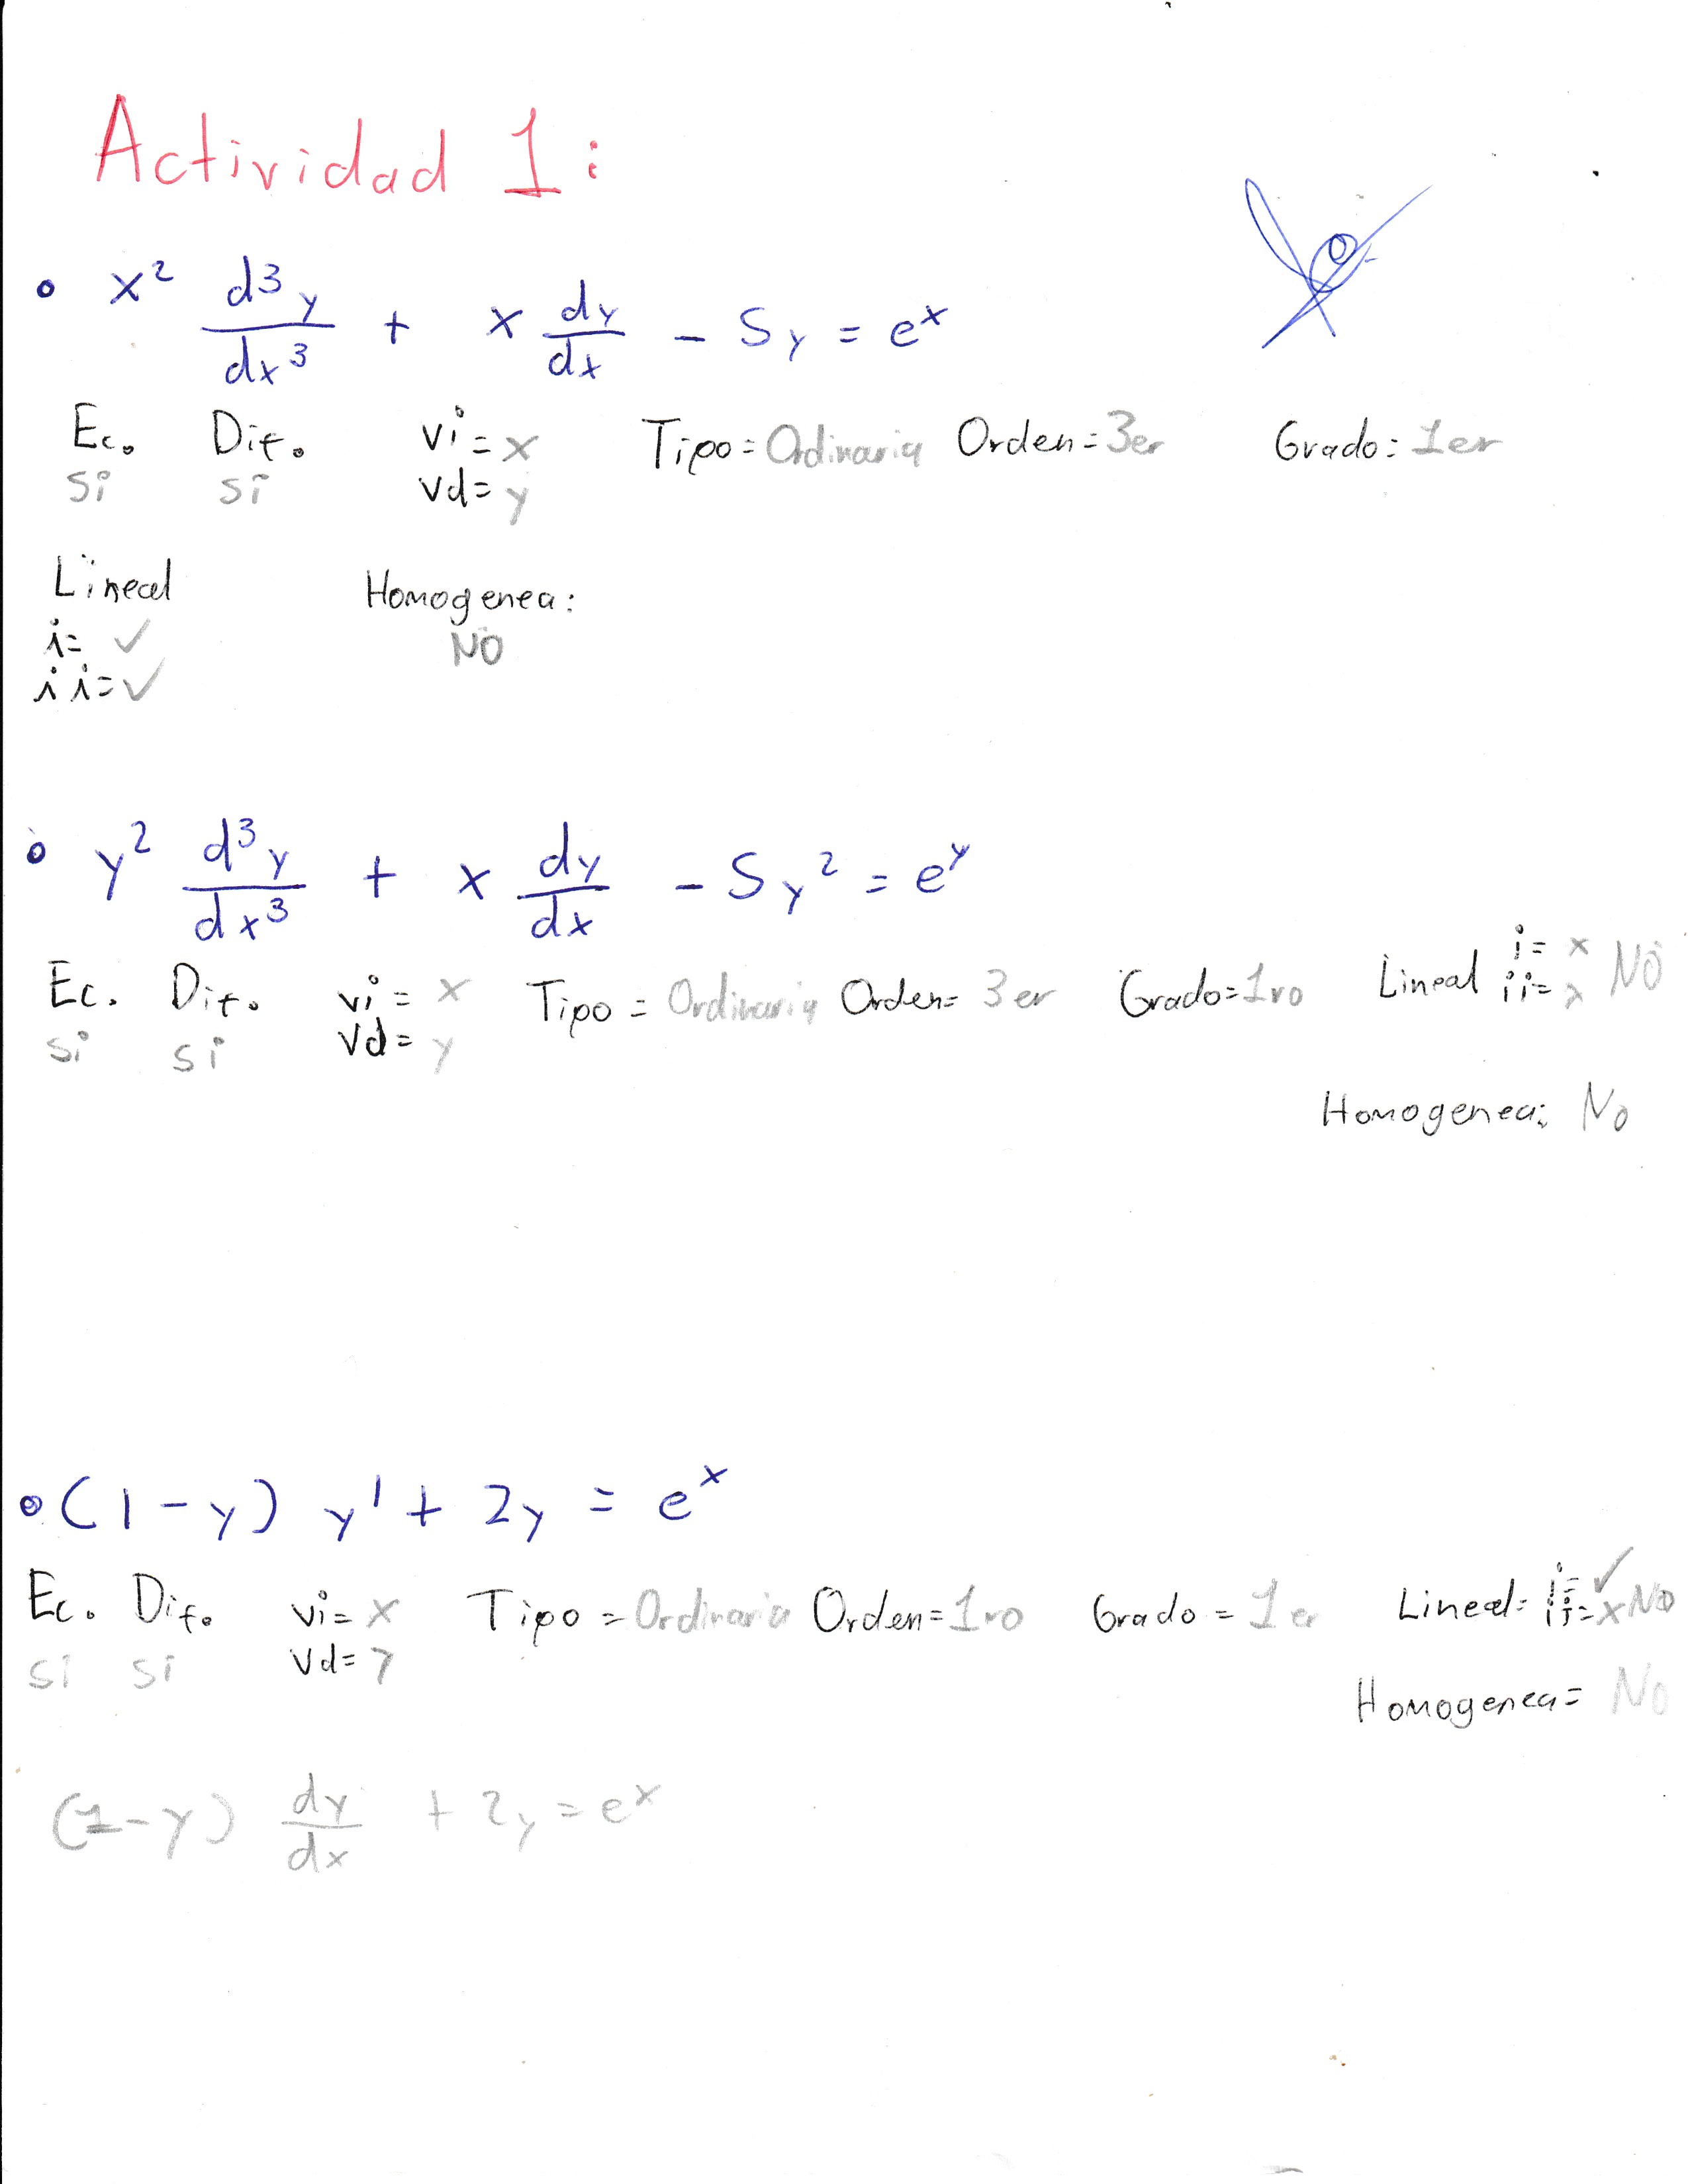 Actividad 1:
• x² d³y/dx³ + x dy/dx - 5y = eˣ
Ec. Dif. vi = x Tipo = Ordinaria Orden = 3er Grado: 1er
si si vd = y
Lineal Homogenea:
i = ✓ NO
ii = ✓
• y² d³y/dx³ + x dy/dx - 5y² = eʸ
Ec. Dif. vi = x Tipo = Ordinaria Orden = 3er Grado = 1ro Lineal i = x ii = x NO
si si vd = y
Homogenea: No
• (1 - y) y' + 2y = eˣ
Ec. Dif. vi = x Tipo = Ordinaria Orden = 1ro Grado = 1er Lineal: i = ✓ ii = x NO
si si vd = y
Homogenea = No
(1 - y) dy/dx + 2y = eˣ